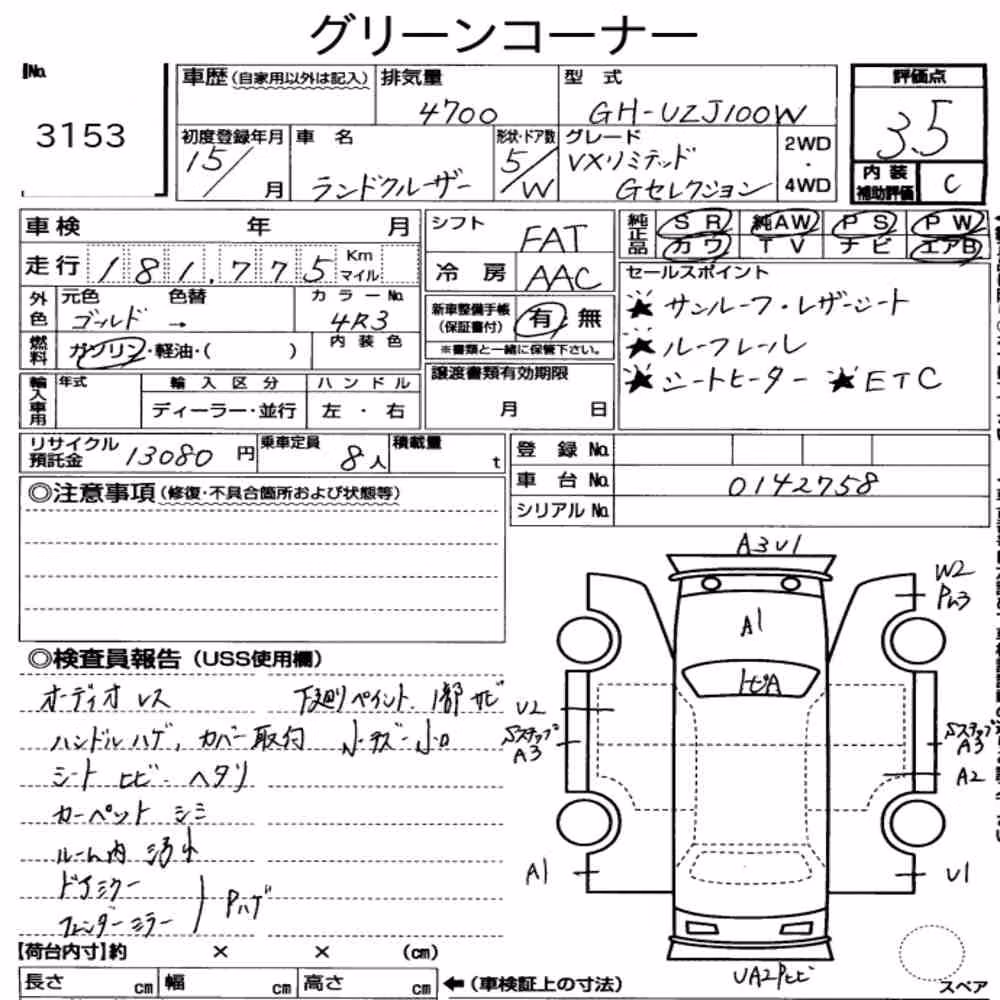 グリーンコーナー
No.
3153
車歴(自家用以外は記入)
排気量
4700
型 式
GH-UZJ100W
評価点
3.5
内装補助評価
C
初度登録年月
15/ 月
車 名
ランドクルーザー
形状・ドア数
5/W
グレード
VXリミテッド
Gセレクション
2WD
・
4WD
車検 年 月
走行 181,775 Km マイル
外色
元色 色替 カラーNo.
ゴールド → 4R3
燃料
ガソリン・軽油・( )
内装色
輸入車用
年式
輸入区分
ハンドル
ディーラー・並行
左 ・ 右
シフト
FAT
冷 房
AAC
新車整備手帳
(保証書付)
有 無
※書類と一緒に保管下さい。
譲渡書類有効期限
月 日
純正品
SR 純AW PS PW
カワ TV ナビ エアB
セールスポイント
★サンルーフ・レザーシート
★ルーフレール
★シートヒーター ★ETC
リサイクル預託金 13080 円
乗車定員 8人
積載量 t
登 録 No.
車 台 No.
0142758
シリアル No.
◎注意事項(修復・不具合箇所および状態等)
◎検査員報告(USS使用欄)
オーディオレス 下廻りペイント、1部サビ
ハンドルハゲ、カバー取付 小キズ・小凹
シート ヒビ・ヘタリ
カーペット シミ
ルーム内 汚れ
ドアミラー
フェンダーミラー
Pハゲ
A3 U1
W2
Pム3
A1
トビA
U2
Sステップ
A3
Sステップ
A3
A2
A1
U1
UA2Pヒビ
スペア
【荷台内寸】約 × × (cm)
長さ cm 幅 cm 高さ cm
←(車検証上の寸法)